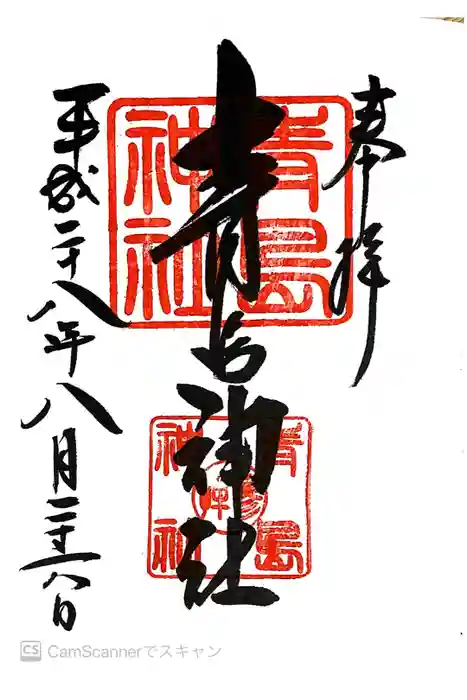 奉拝
青島神社
青島
神社
青島
神社
平成二十八年八月二十八日
CS CamScannerでスキャン